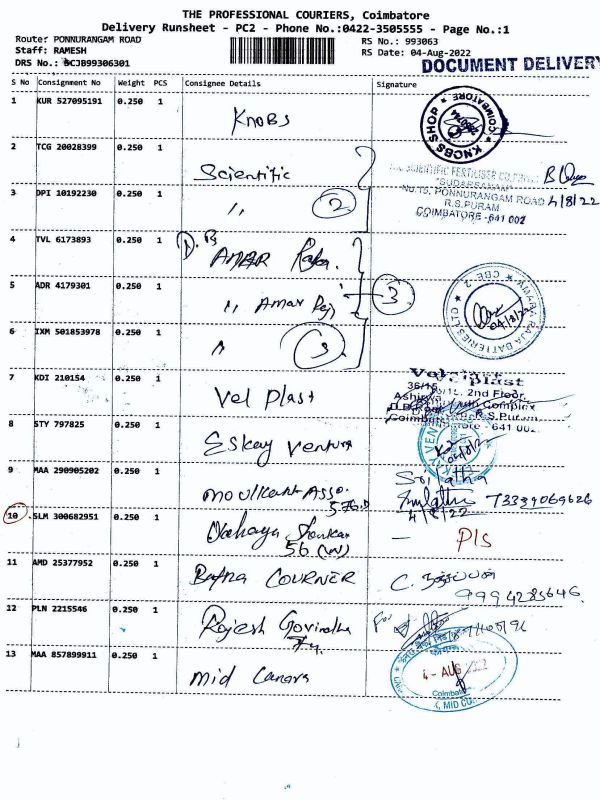 THE PROFESSIONAL COURIERS, Coimbatore
Delivery Runsheet - PC2 - Phone No.:0422-3505555 - Page No.:1
Route: PONNURANGAM ROAD
RS No.: 993063
Staff: RAMESH
RS Date: 04-Aug-2022
DOCUMENT DELIVERY
DRS No.: BCJB99306301
S No Consignment No Weight PCS Consignee Details Signature
1 KUR 527095191 0.250 1 KNOBS
KNOBS SHOP
COIMBATORE
2 TCG 20028399 0.250 1 Scientific
SCIENTIFIC FERTILISER CO. PVT
"SUDARSANAM"
3 DPI 10192230 0.250 1 〃 2
NO.15, PONNURANGAM ROAD 4/8/22
R.S.PURAM
COIMBATORE - 641 002
4 TVL 6173893 0.250 1 Amar Raja.
5 ADR 4179301 0.250 1 〃 Amar Raj 3
AMARA RAJA BATTERIES LTD CBE-2
04/8/22
6 IXM 501853978 0.250 1 〃 3
7 KDI 210154 0.250 1 Vel Plast
Vel plast
36/15, 2nd Floor,
Complex
R.S.Puram,
Coimbatore - 641 002.
8 STY 797825 0.250 1 Eskay Ventura
9 MAA 290905202 0.250 1
Srilatha
Srilatha 73339069626
4/8/22
10 SLM 300682951 0.250 1 Sankar
56 (W)
– Pls
11 AMD 25377952 0.250 1 Batra COURNER
C.
9994285646.
12 PLN 2215546 0.250 1 Rajesh Govindha
For
13 MAA 857899911 0.250 1 Mid Canara
4 - AUG 2022
Coimbatore
MID CO